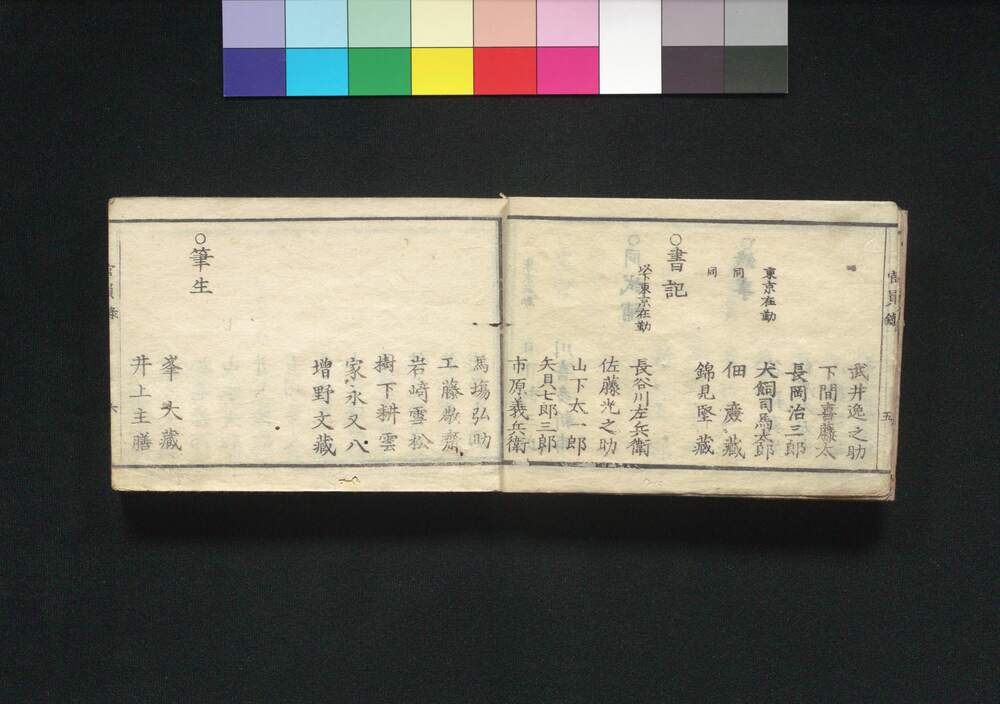 官員録
五
武井逸之助
下間喜藤太
長岡治三郎
東京在勤
犬飼司馬太郎
同
佃 廣藏
同
錦見堅藏
○書記
以下東京在勤
長谷川左兵衛
佐藤光之助
山下太一郎
矢貝七郎三郎
市原義兵衛
馬塲弘助
工藤歓齋
岩﨑雪松
樹下耕雲
家永又八
增野文藏
○筆生
峯 大藏
井上主膳